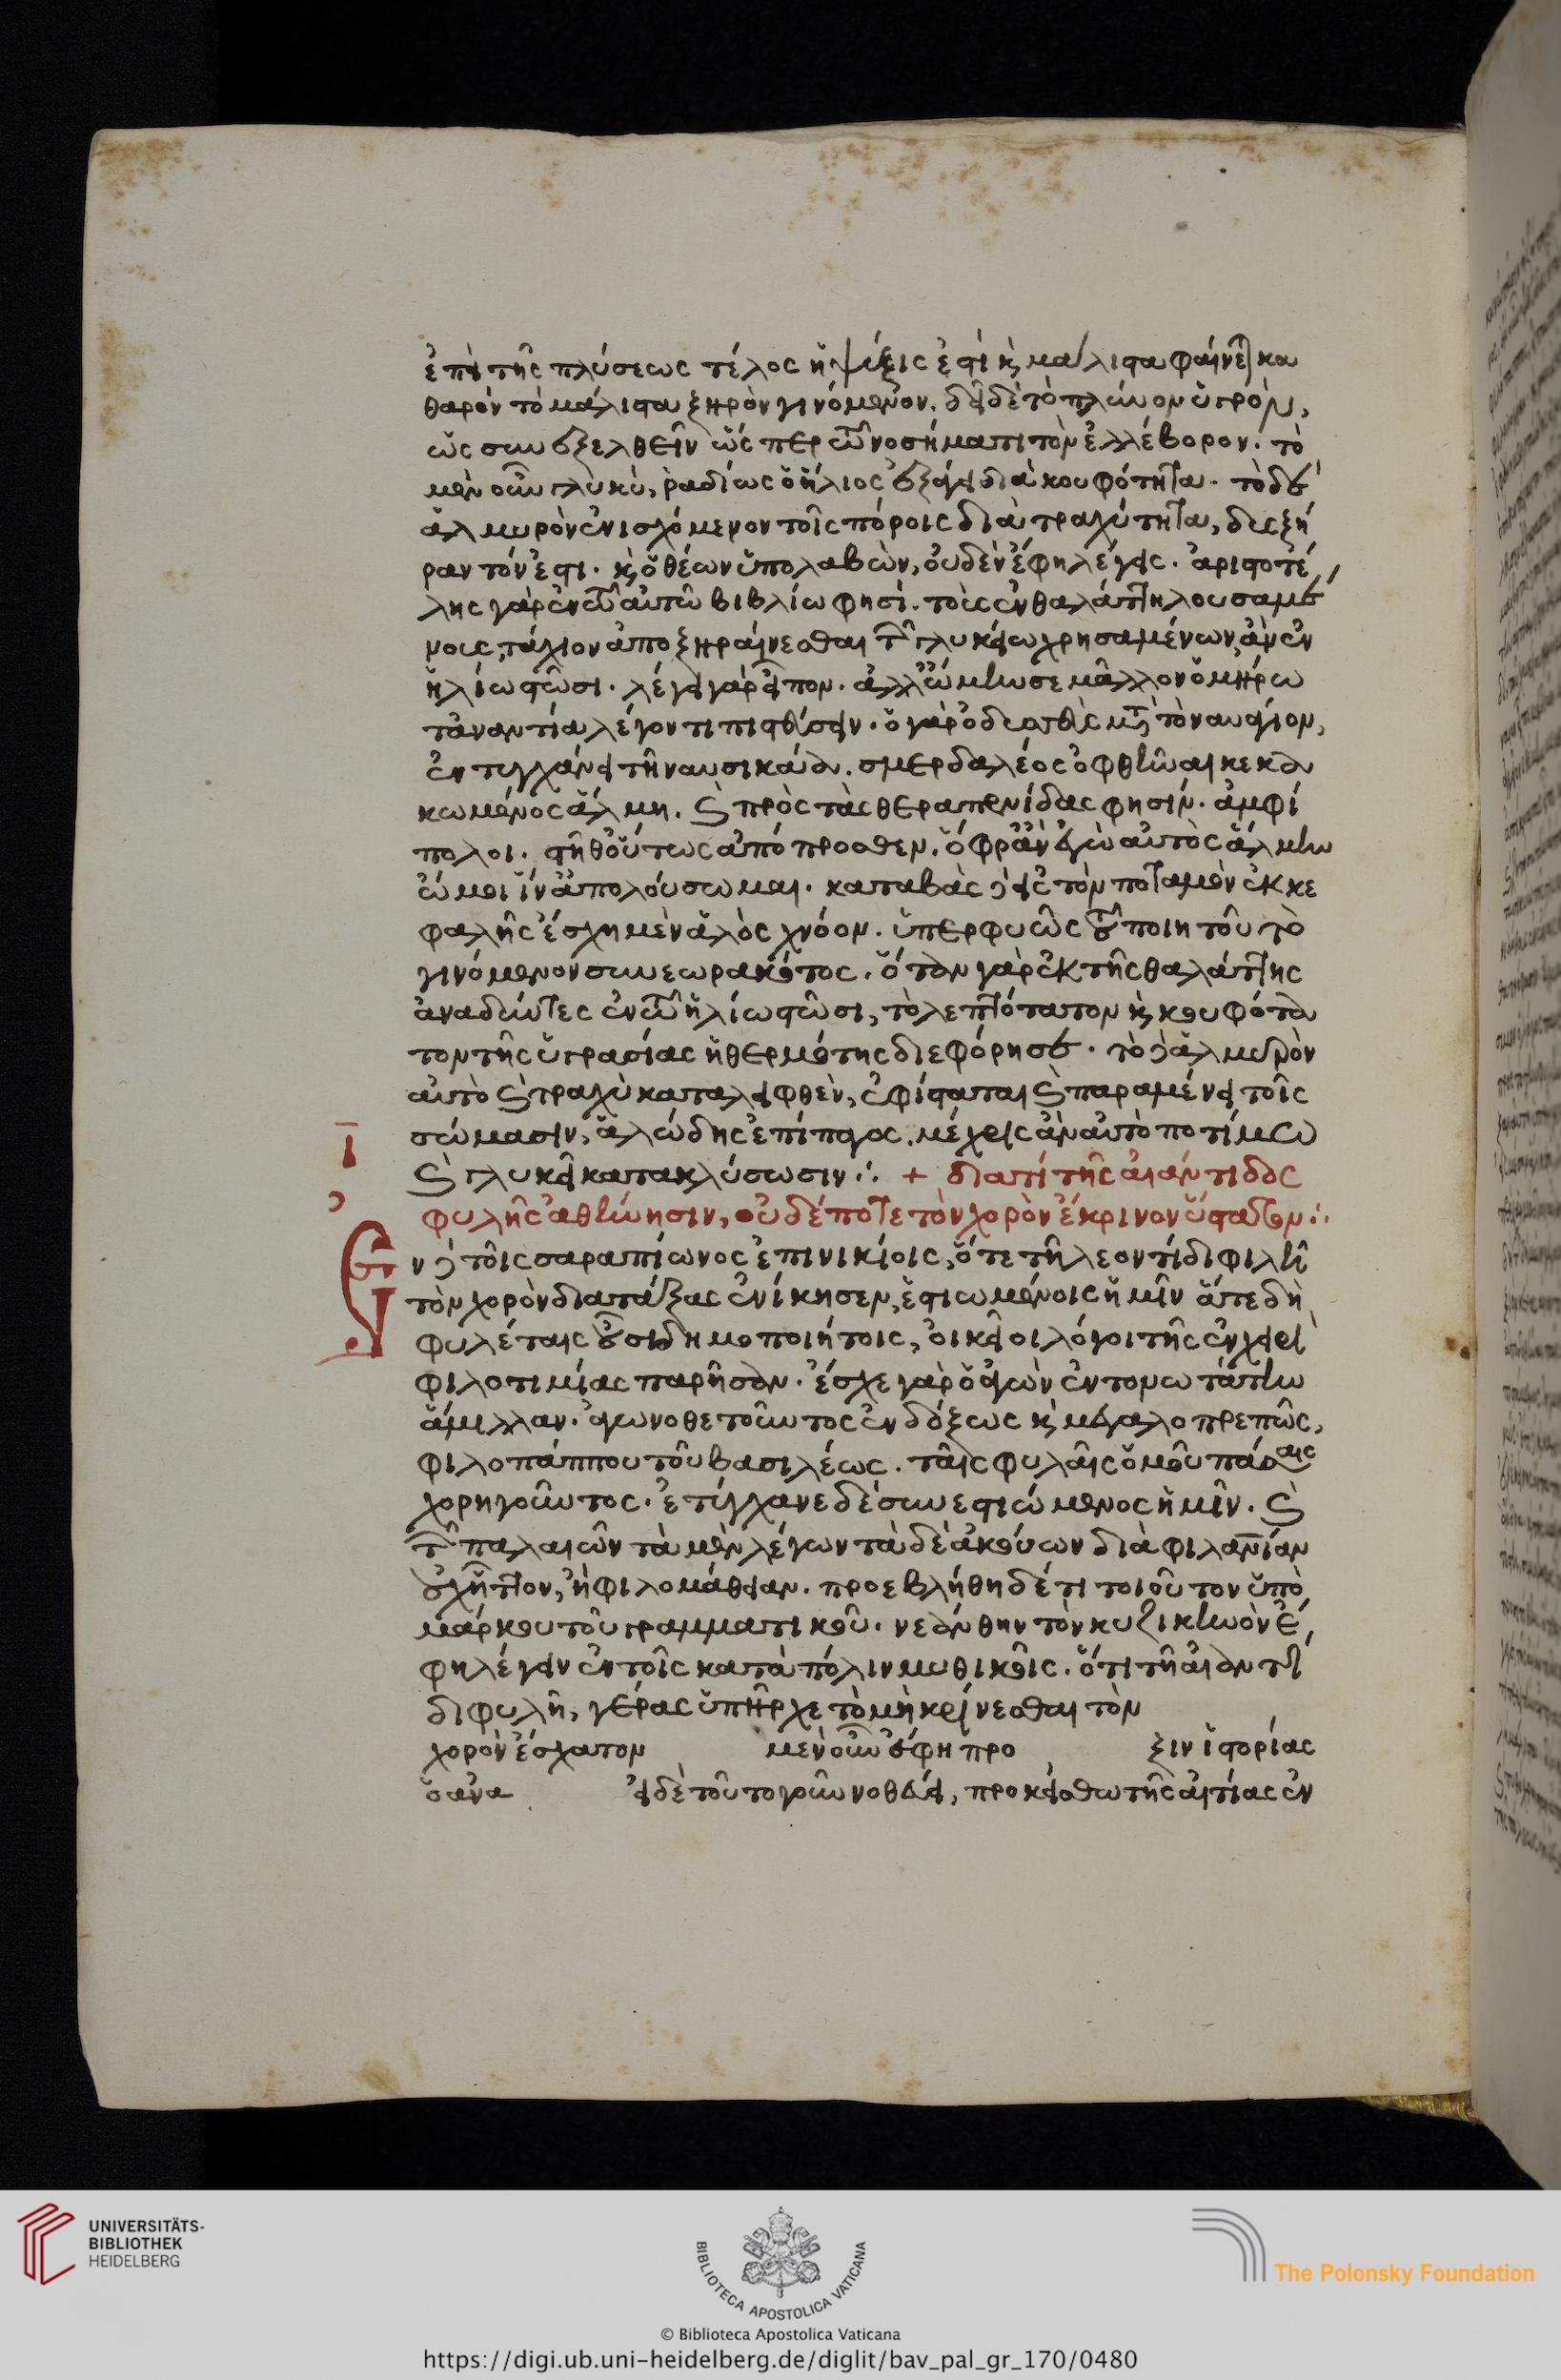 ἐπεὶ τῆς πλύσεως τέλος ἡ ψύξις ἐστὶ κ̀ μάλιστα φαίνεται κα
θαρὸν τὸ μάλιστα ξηρὸν γινόμενον. δεῖ δὲ τὸ πλύνον ὑγρὸν,
ὡς συνεξελθεῖν ὥσπερ τῷ νοσήματι τὸν ἐλλέβορον. τὸ
μὲν οὖν γλυκὺ, ῥαδίως ὁ ἥλιος ἐξάγει διὰ κουφότητα. τὸ δὲ
ἁλμυρὸν ἐνισχόμενον τοῖς πόροις διὰ τραχύτητα, δυσξή
ραντόν ἐστι. κ̀ ὁ θέων ὑπολαβὼν, οὐδὲν ἔφη λέγεις. ἀριστοτέ
λης γὰρ ἐν τῷ αὐτῶ βιβλίω φησὶ. τοὺς ἐν θαλάττη λουσαμέ
νους, τάχιον ἀποξηραίνεσθαι τῶν γλυκεῖ χρησαμένων, ἂν ἐν
ἡλίω στῶσι. λέγει γὰρ εἶπον. ἀλλ' ᾤμην σε μᾶλλον ὁμήρω
τἀναντία λέγοντι πιστεύσειν. ὁ γὰρ ὀδυσσεὺς μετὰ τὸ ναυάγιον,
ἐντυγχάνει τῆ ναυσικάα. σμερδαλέος ὀφθῆναι κεκα
κωμένος ἅλμη. καὶ πρὸς τὰς θεραπαινίδας φησίν. ἀμφί
πολοι. στῆθ' οὕτως ἀπόπροσθεν. ὄφρ' ἂν ἐγὼ αὐτὸς ἅλμην
ὤμοιιν ἀπολούσωμαι. καταβὰς δ' εἰς τὸν ποταμὸν ἐκ κε
φαλῆς ἔσχημεν ἁλὸς χνόον. ὑπερφυῶς τοῦ ποιητοῦ τὸ
γινόμενον συνεωρακότος. ὅταν γὰρ ἐκ τῆς θαλάττης
ἀναδύντες ἐν τῷ ἡλίω στῶσι, τὸ λεπτότατον κ̀ κουφότα
τον τῆς ὑγρασίας ἡ θερμότης διεφόρησε. τὸ δ' ἁλμυρὸν
αὐτὸ καὶ τραχὺ καταλειφθὲν, ἐφίσταται καὶ παραμένει τοῖς
σώμασιν, ἁλώδης ἐπίπαγος. μέχρις ἂν αὐτὸ ποτίμω
καὶ γλυκεῖ κατακλύσωσιν ∴ + διατί τῆς αἰαντίδος
φυλῆς ἀθήνησιν, οὐδέποτε τὸν χορὸν ἔκρινον ὕστατον ∴
Εν δ' τοῖς σαραπίωνος ἐπινικίοις, ὅτε τῆ λεοντίδι φυλῆ
τὸν χορὸν διατάξας ἐνίκησεν, ἑστιωμένοις ἡμῖν ἅτε δὴ
φυλέταις οὖσι δημοποιήτοις, οἰκεῖοι λόγοι τῆς ἐν χειρὶ
φιλοτιμίας παρῆσαν. ἔσχε γὰρ ὁ ἀγὼν ἐντονωτάτην
ἅμιλλαν. ἀγωνοθετοῦντος ἐνδόξως κ̀ μεγαλοπρεπῶς,
φιλοπάππου τοῦ βασιλέως. ταῖς φυλαῖς ὁμοῦ πάσαις
χορηγοῦντος. ἐτύγχανε δὲ συνεστιώμενος ἡμῖν. καὶ
τῶν παλαιῶν τὰ μὲν λέγων τὰ δὲ ἀκούων διὰ φιλανθρωπίαν
οὐχ ἧττον, ἢ φιλομάθειαν. προεβλήθη δέ τι τοιοῦτον ὑπὸ
μάρκου τοῦ γραμματικοῦ. νεάνθην τὸν κυζικηνὸν ἔ
φη λέγειν ἐν τοῖς κατὰ πόλιν μυθικοῖς. ὅτι τῆ αἰαντί
δι φυλῆ, γέρας ὑπῆρχε τὸ μὴ κρίνεσθαι τὸν
χορὸν ἔσχατον μὲν οὖν ἔφη προ ξιν ἱστορίας
ὁ ἀνα εἰ δὲ τοῦτο γοῦν νοθεύει, προκείσθω τῆς αἰτίας ἐν
ι
UNIVERSITÄTS-
BIBLIOTHEK
HEIDELBERG
BIBLIOTECA APOSTOLICA VATICANA
The Polonsky Foundation
© Biblioteca Apostolica Vaticana
https://digi.ub.uni-heidelberg.de/diglit/bav_pal_gr_170/0480